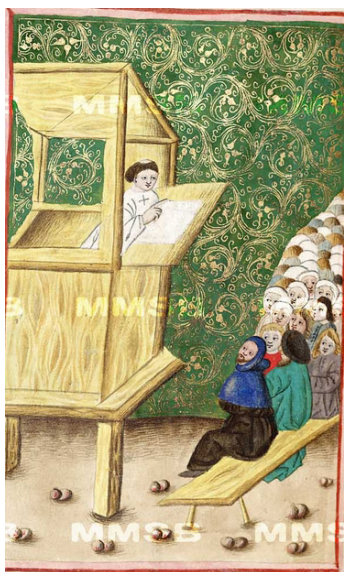 MMSB MMS
SB MMSB MMS
B MMSB MMS